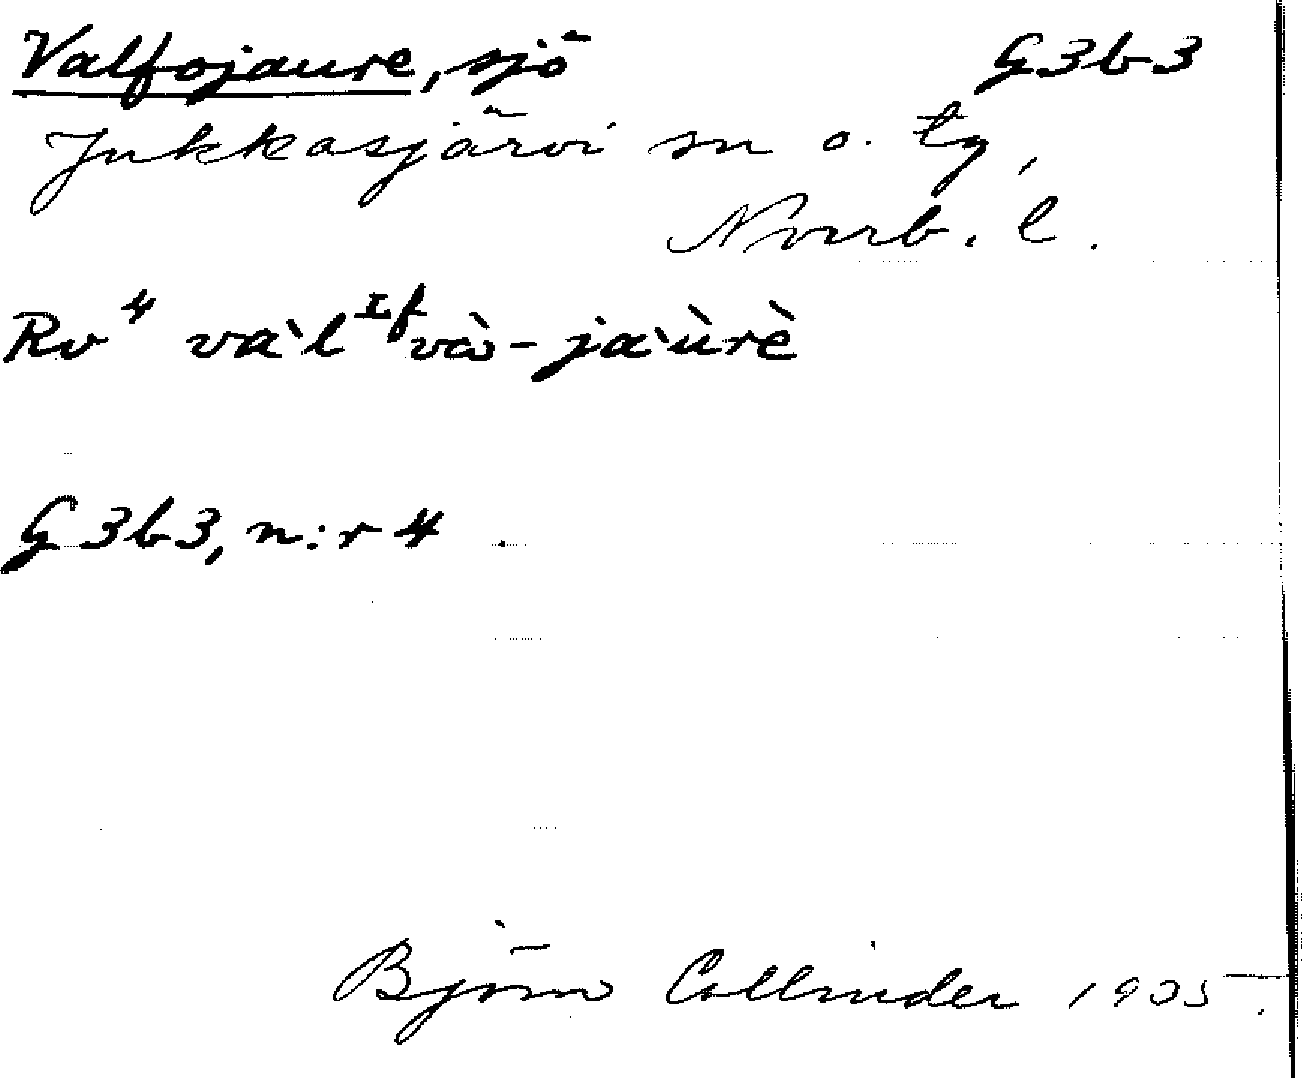 Valfojaure, sjö G3b3
Jukkasjärvi sn o. tg,
Norrb. l.
Rv⁴ va`l ᴵf vò - ja`ùrè
G3b3, n:r 4
Björn Collinder 1935.